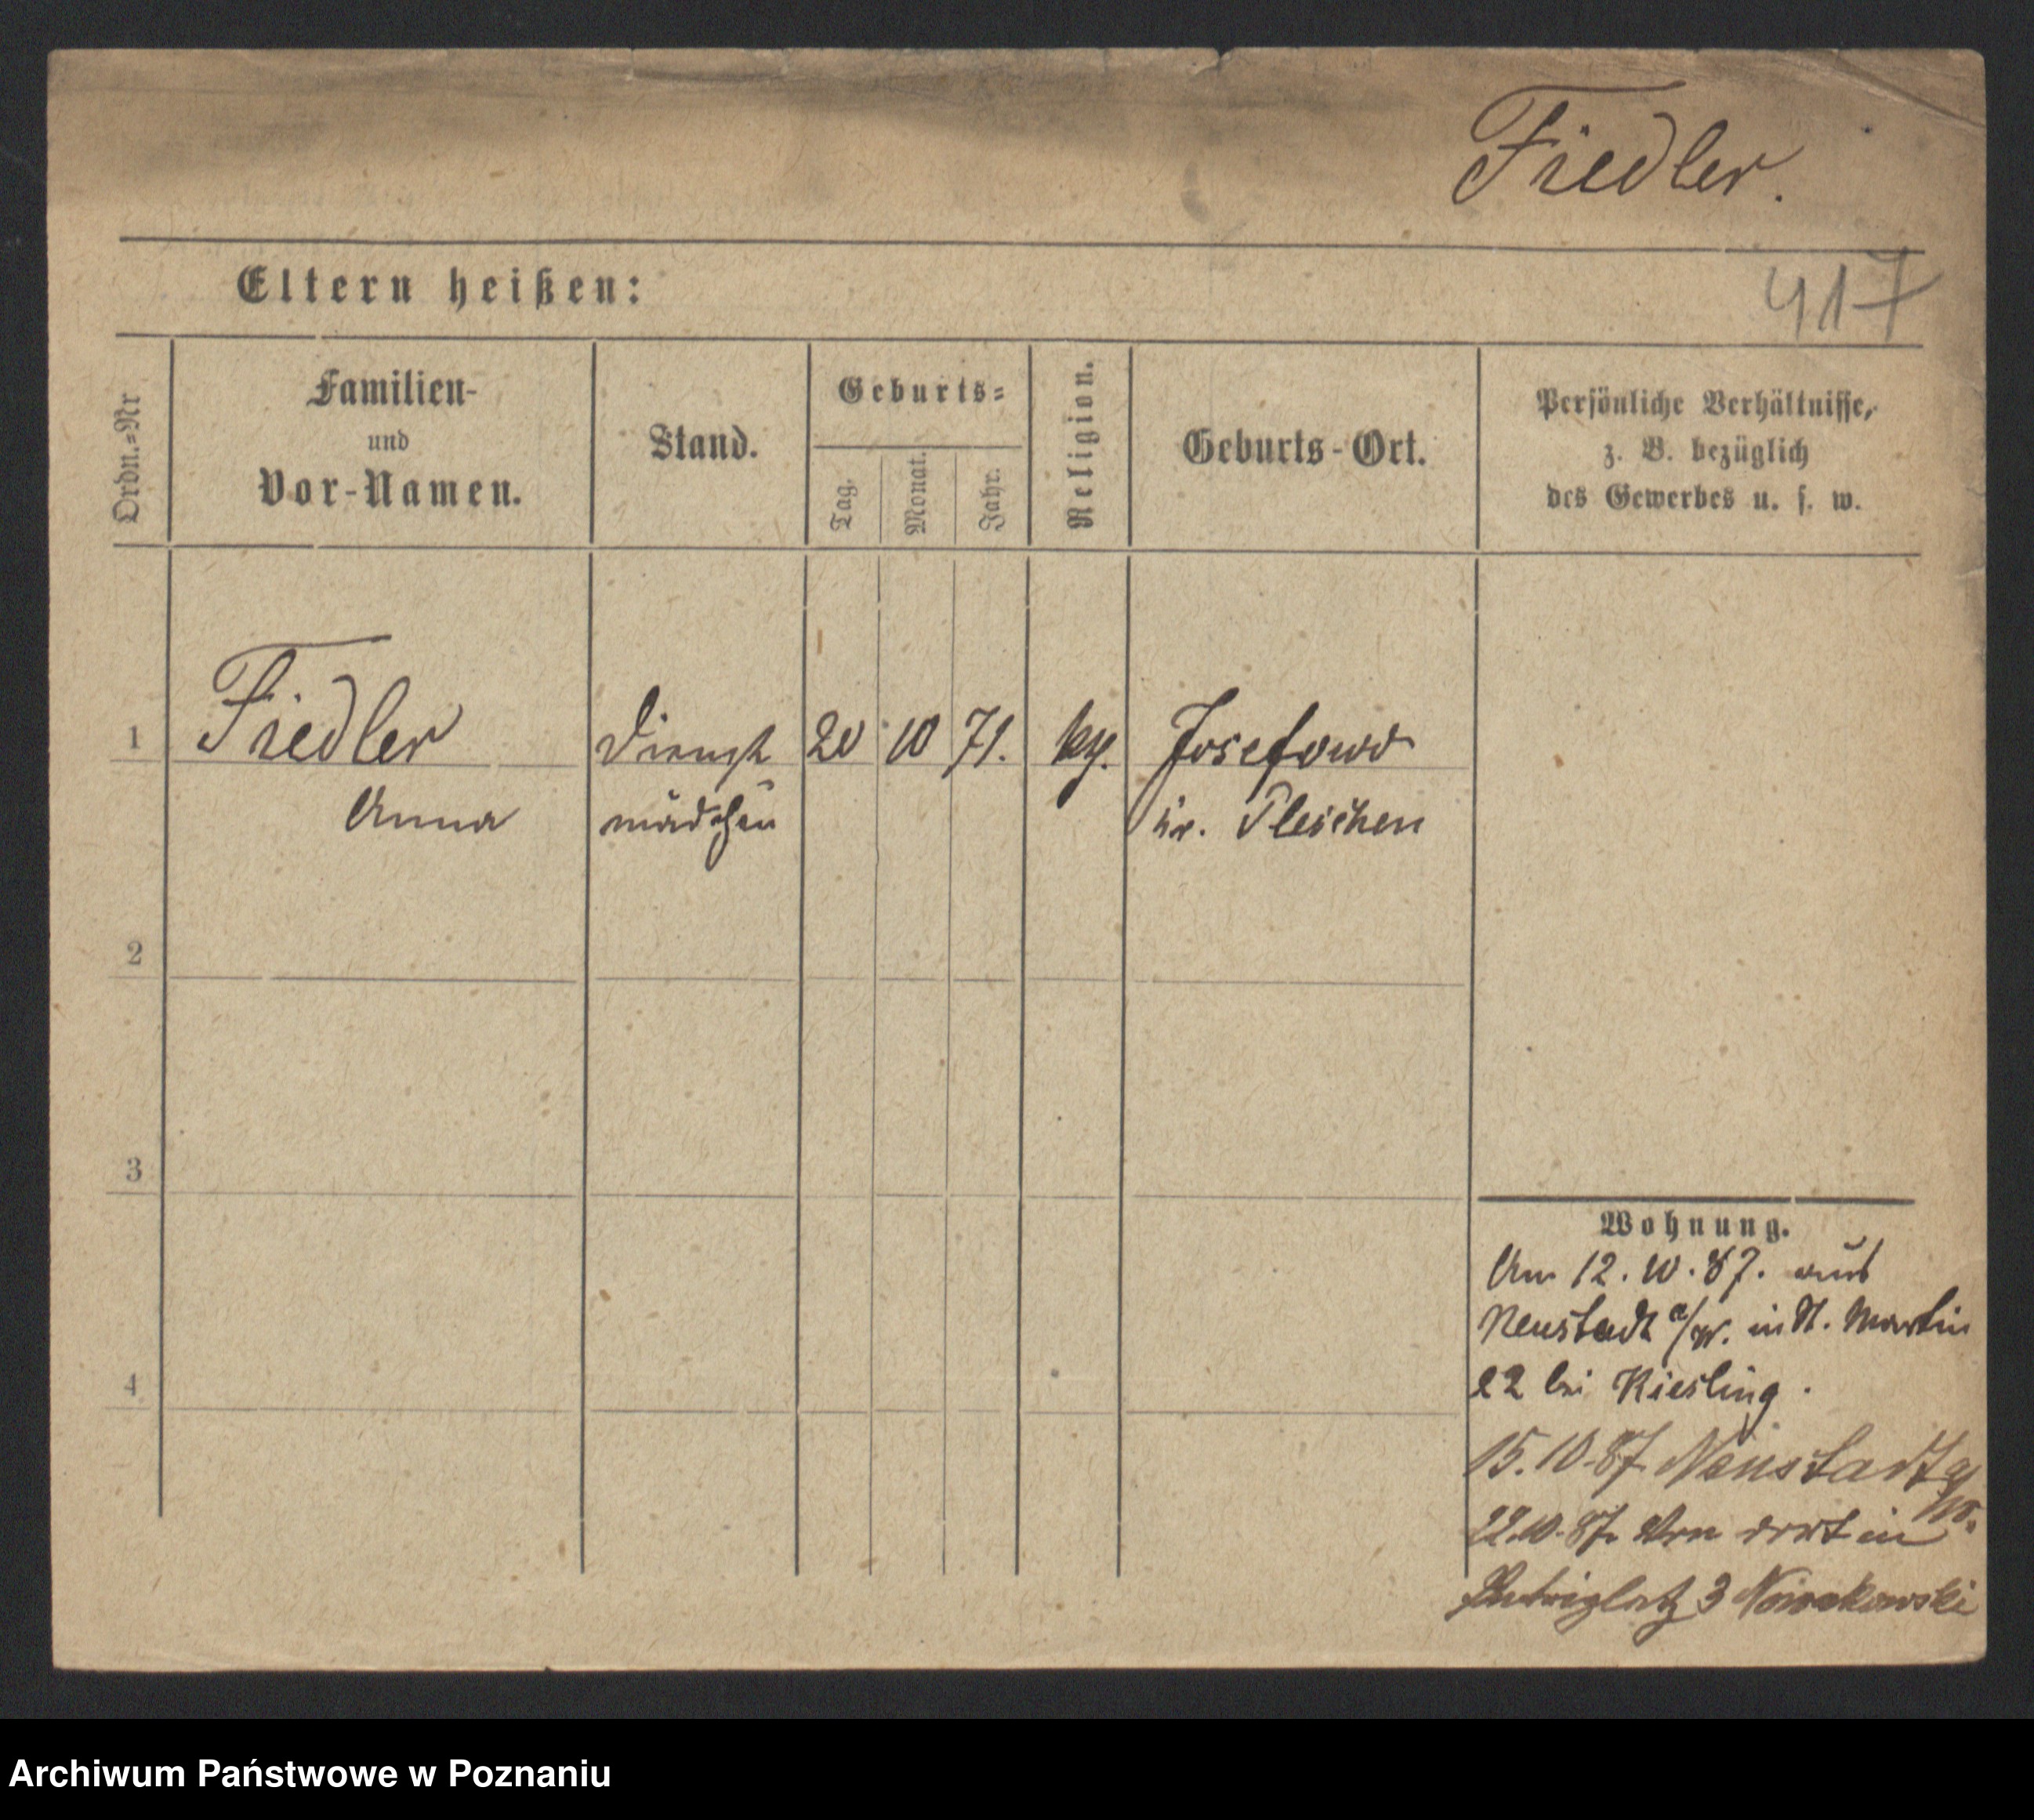 Fiedler.
Eltern heißen:
417
Ordn.=Nr
Familien-
und
Vor-Namen.
Stand.
Geburts=
Tag.
Monat.
Jahr.
Religion.
Geburts-Ort.
Persönliche Verhältnisse,
z. B. bezüglich
des Gewerbes u. s. w.
1 Fiedler Dienst 20 10 71. Josefowo
Anna mädchen Kr. Pleschen
2
3
4
Wohnung.
Am 12.10.87. aus
Neustadt a/W. in St. Martin
22 bei Kiesling.
15.10.87 Neustadt a/
W.
22.10.87. Von dort in
3 Nowakowski
Archiwum Państwowe w Poznaniu